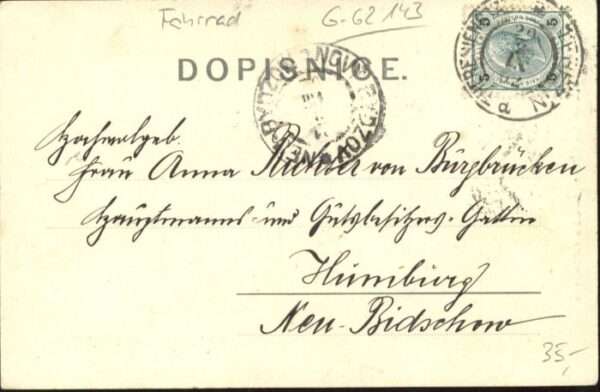 Fahrrad
G-62 143
DOPISNICE.
Hochwolgeb.
Frau Anna Richter von Bürgbrucken
Hauptmanns- und Gutsbesitzers-Gattin
Humburg
Neu-Bidschow
35,-